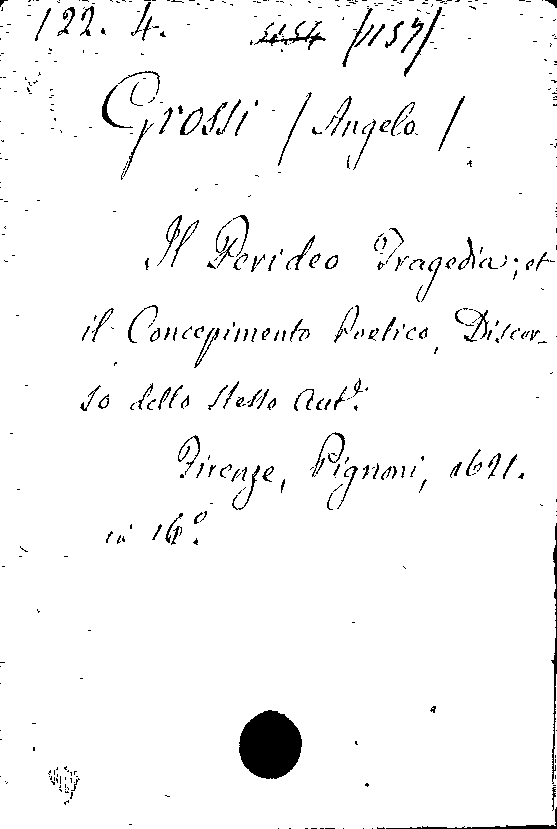 122. 4. 5154 /1157/
Grossi / Angelo /
Il Perideo Tragedia; et
il Concepimento Poetico, Discor-
so dello stesso Autᵉ.
Firenze, Pignoni, 1621.
in 16º.